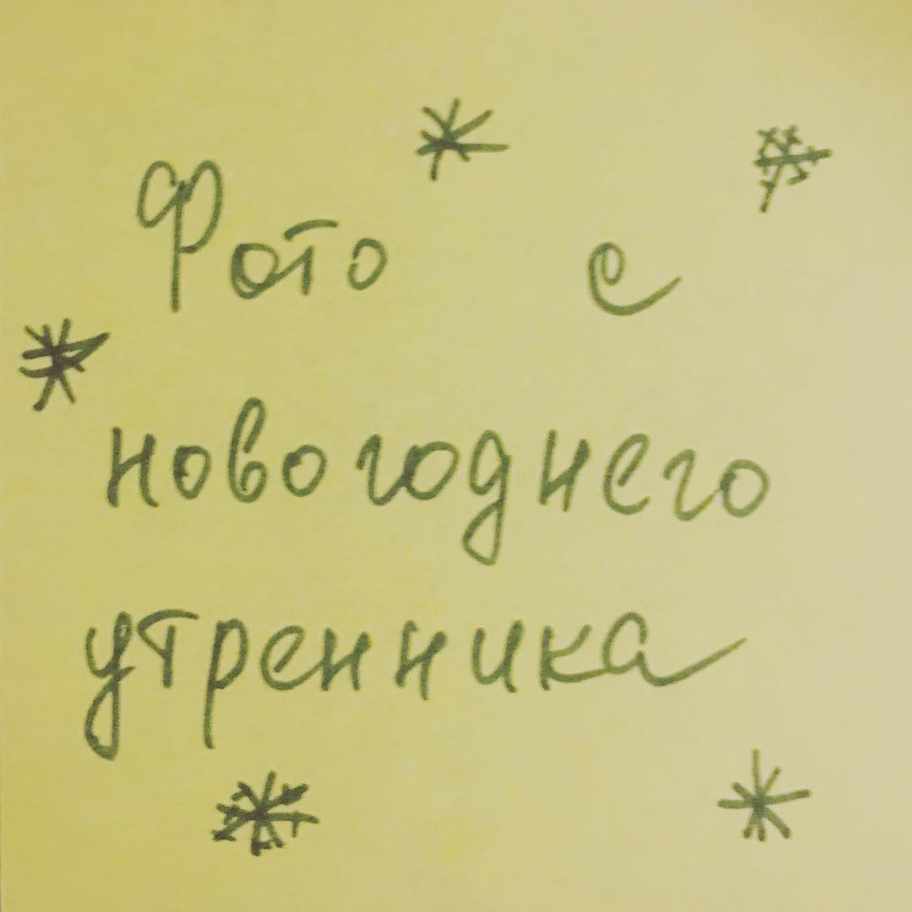 Фото с
новогоднего
утренника